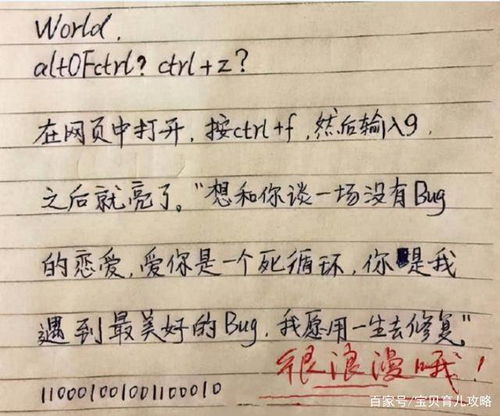 World.
alt0Fctrl? ctrl+z?
在网页中打开,按ctrl+f,然后输入9.
之后就亮了。"想和你谈一场没有Bug
的恋爱,爱你是一个死循环,你是我
遇到最美好的Bug,我愿用一生去修复"
很浪漫哦!
11000100100110010
百家号/宝贝育儿攻略